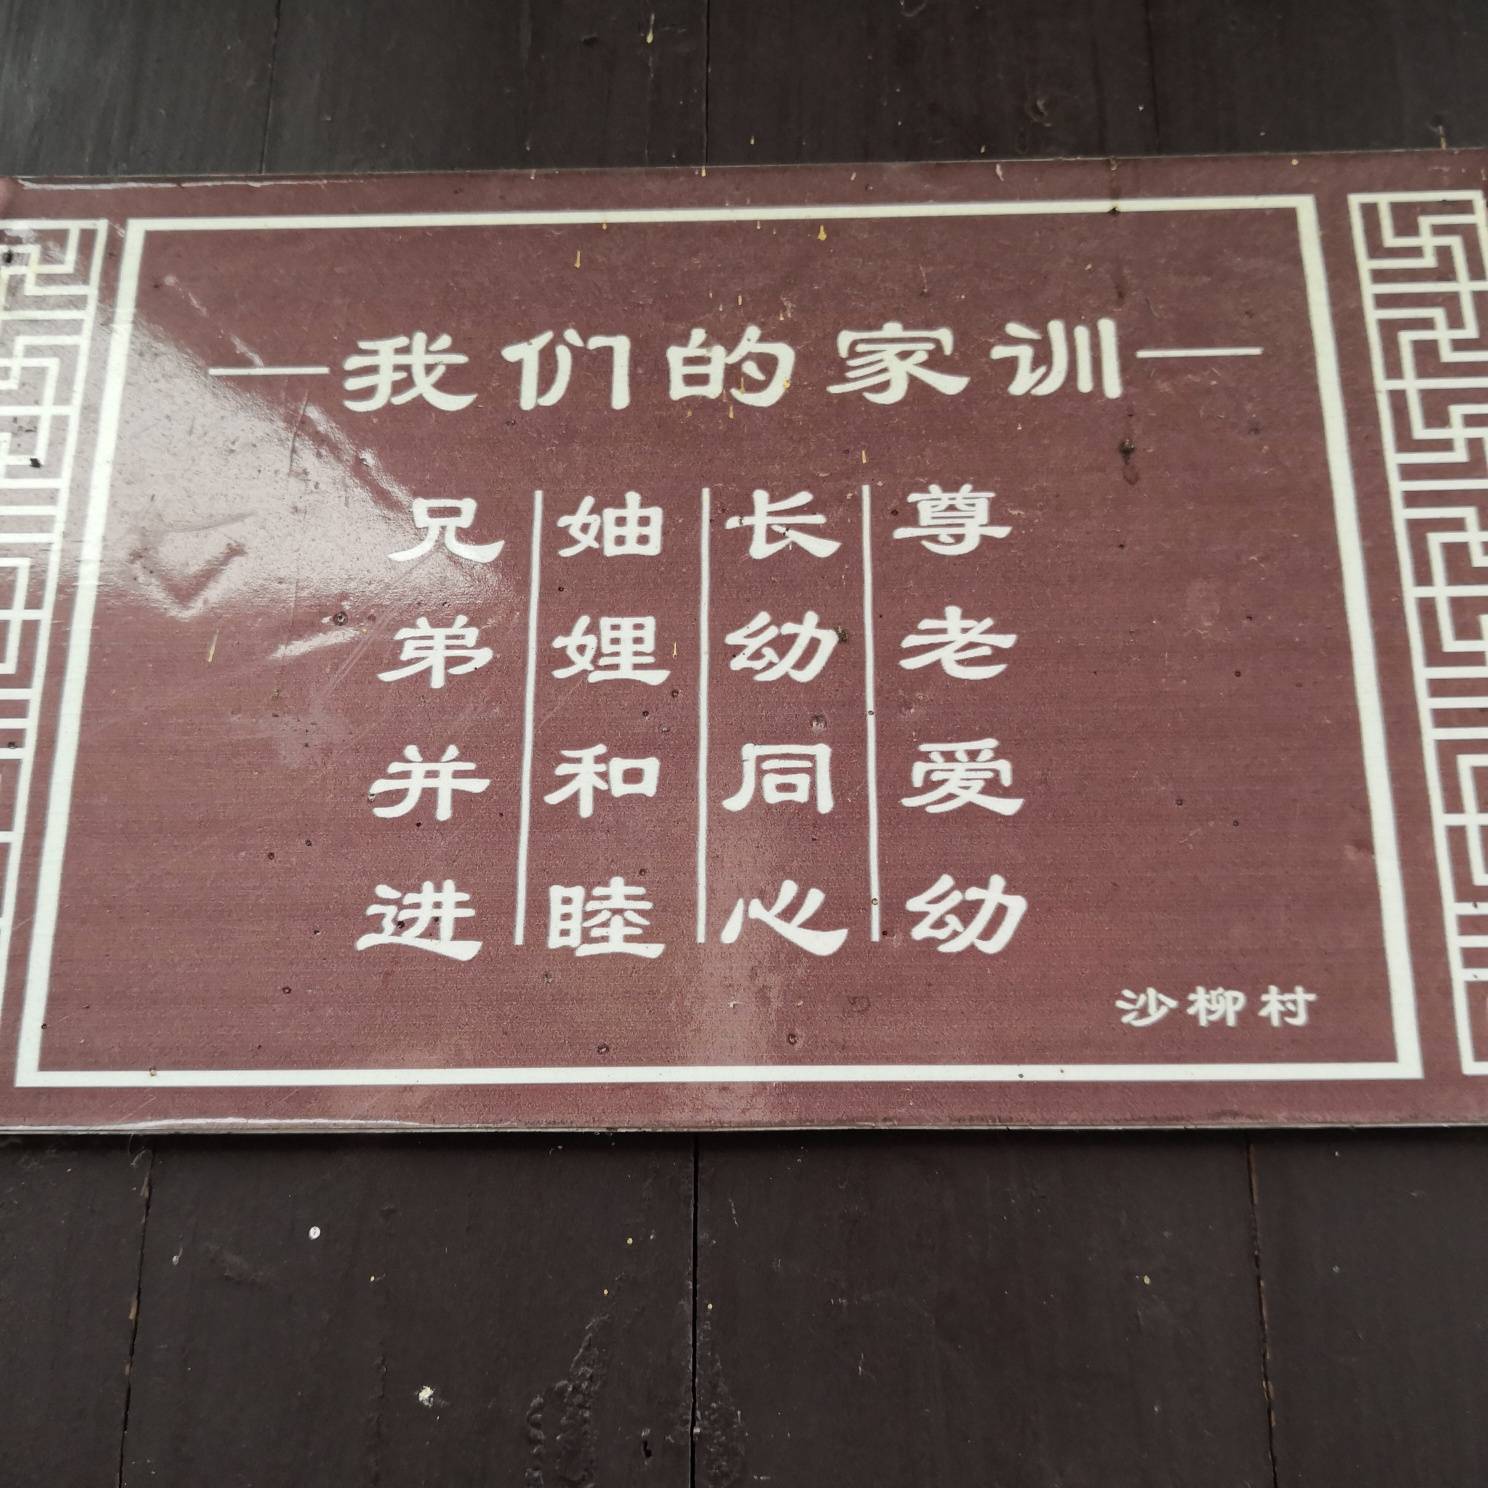 我们的家训
尊老爱幼
长幼同心
妯娌和睦
兄弟并进
沙柳村